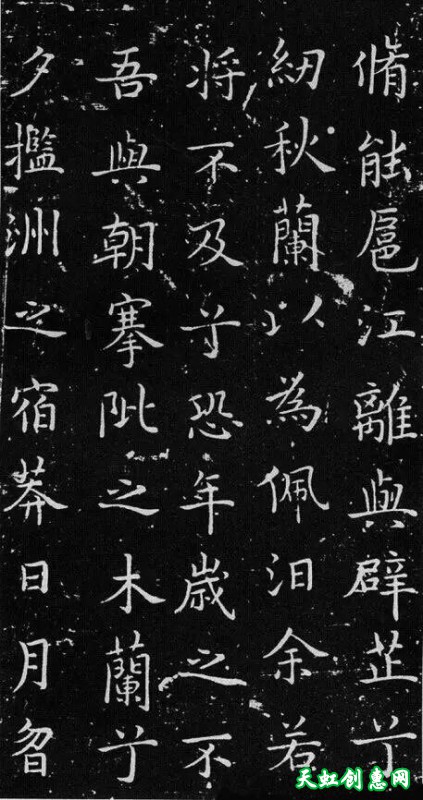 脩能扈江離與辟芷兮
紉秋蘭以為佩汨余若
將不及兮恐年歲之不
吾與朝搴阰之木蘭兮
夕攬洲之宿莽日月曶
天虹创惠网